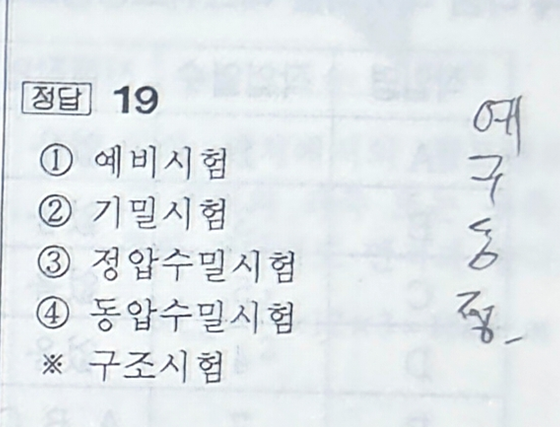 정답 19
① 예비시험
② 기밀시험
③ 정압수밀시험
④ 동압수밀시험
※ 구조시험
예
구
동
정